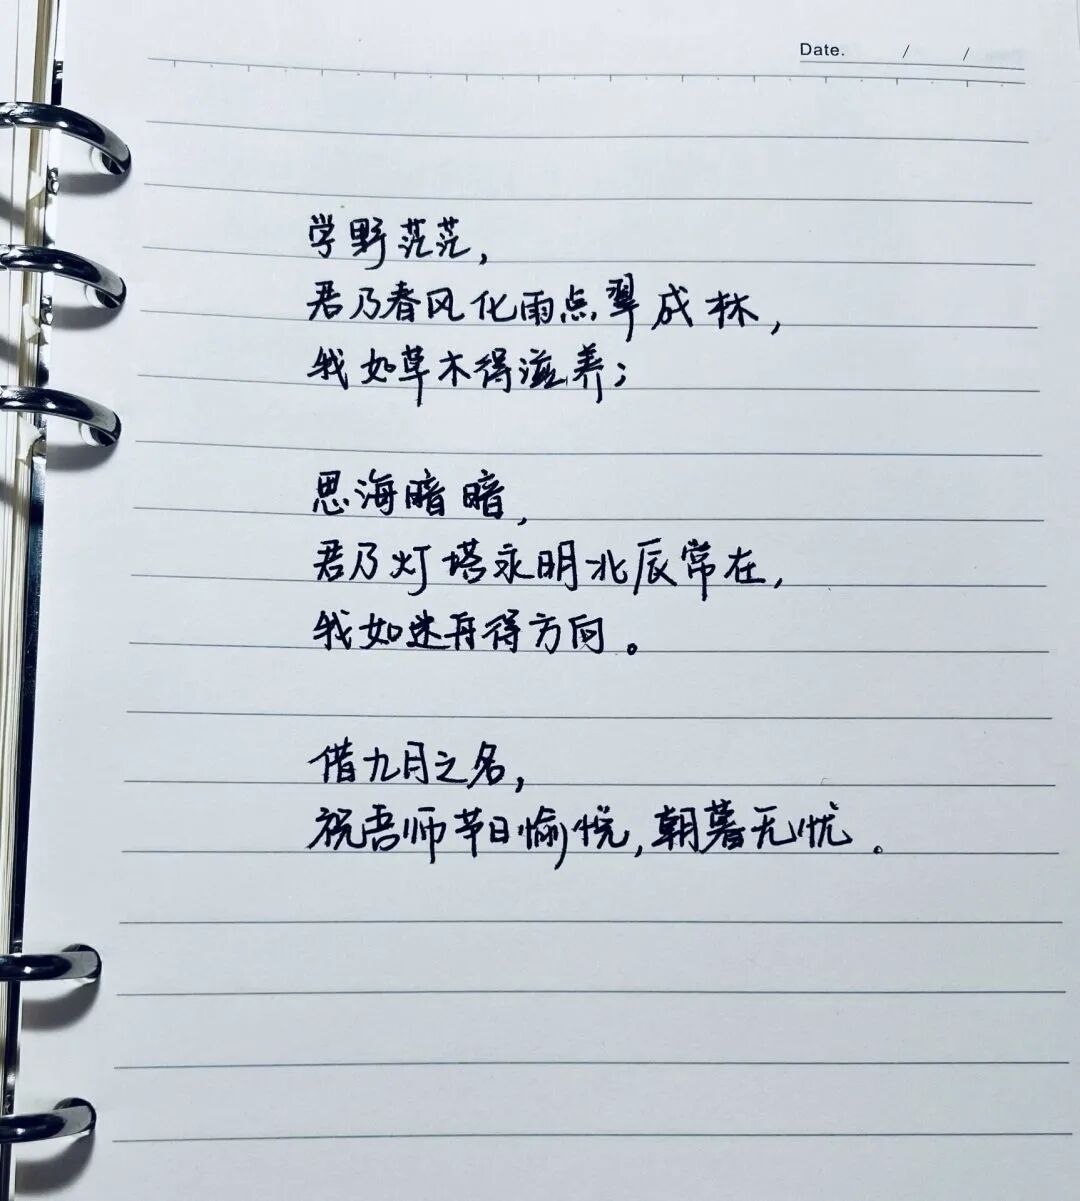 Date. / /
学野茫茫，
君乃春风化雨点翠成林，
我如草木得滋养；
思海暗暗，
君乃灯塔永明北辰常在，
我如迷舟得方向。
借九月之名，
祝吾师节日愉悦，朝暮无忧。